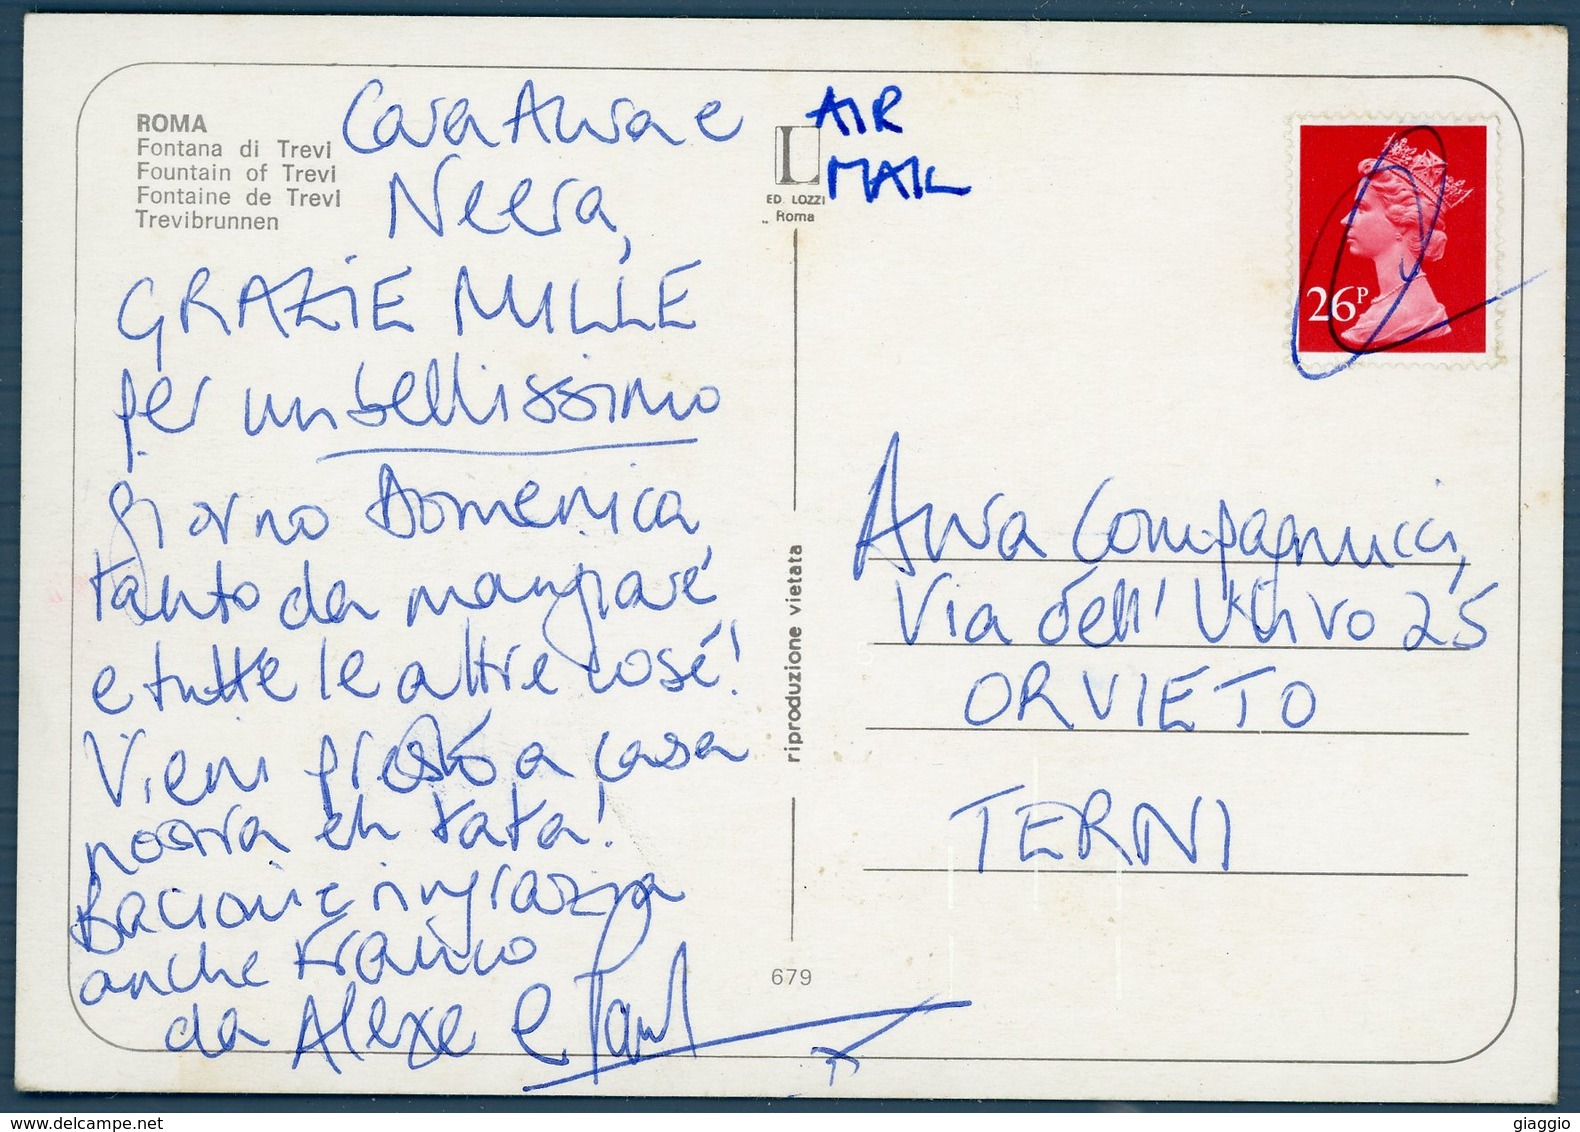 ROMA
Fontana di Trevi
Fountain of Trevi
Fontaine de Trevi
Trevibrunnen
Cara Aura e
Neera,
GRAZIE MILLE
per un bellissimo
giorno Domenica,
tanto da mangiaré
e tutte le altre cosé!
Vieni presto a casa
nostra eh tata!
Bacioni e ringrazia
anche Franco
da Alexe e Paul
x
L
ED. LOZZI
Roma
riproduzione vietata
679
AIR
MAIL
26P
Aura Compagnucci,
Via dell' Ulivo 25
ORVIETO
TERNI
delcampe.net
giaggio